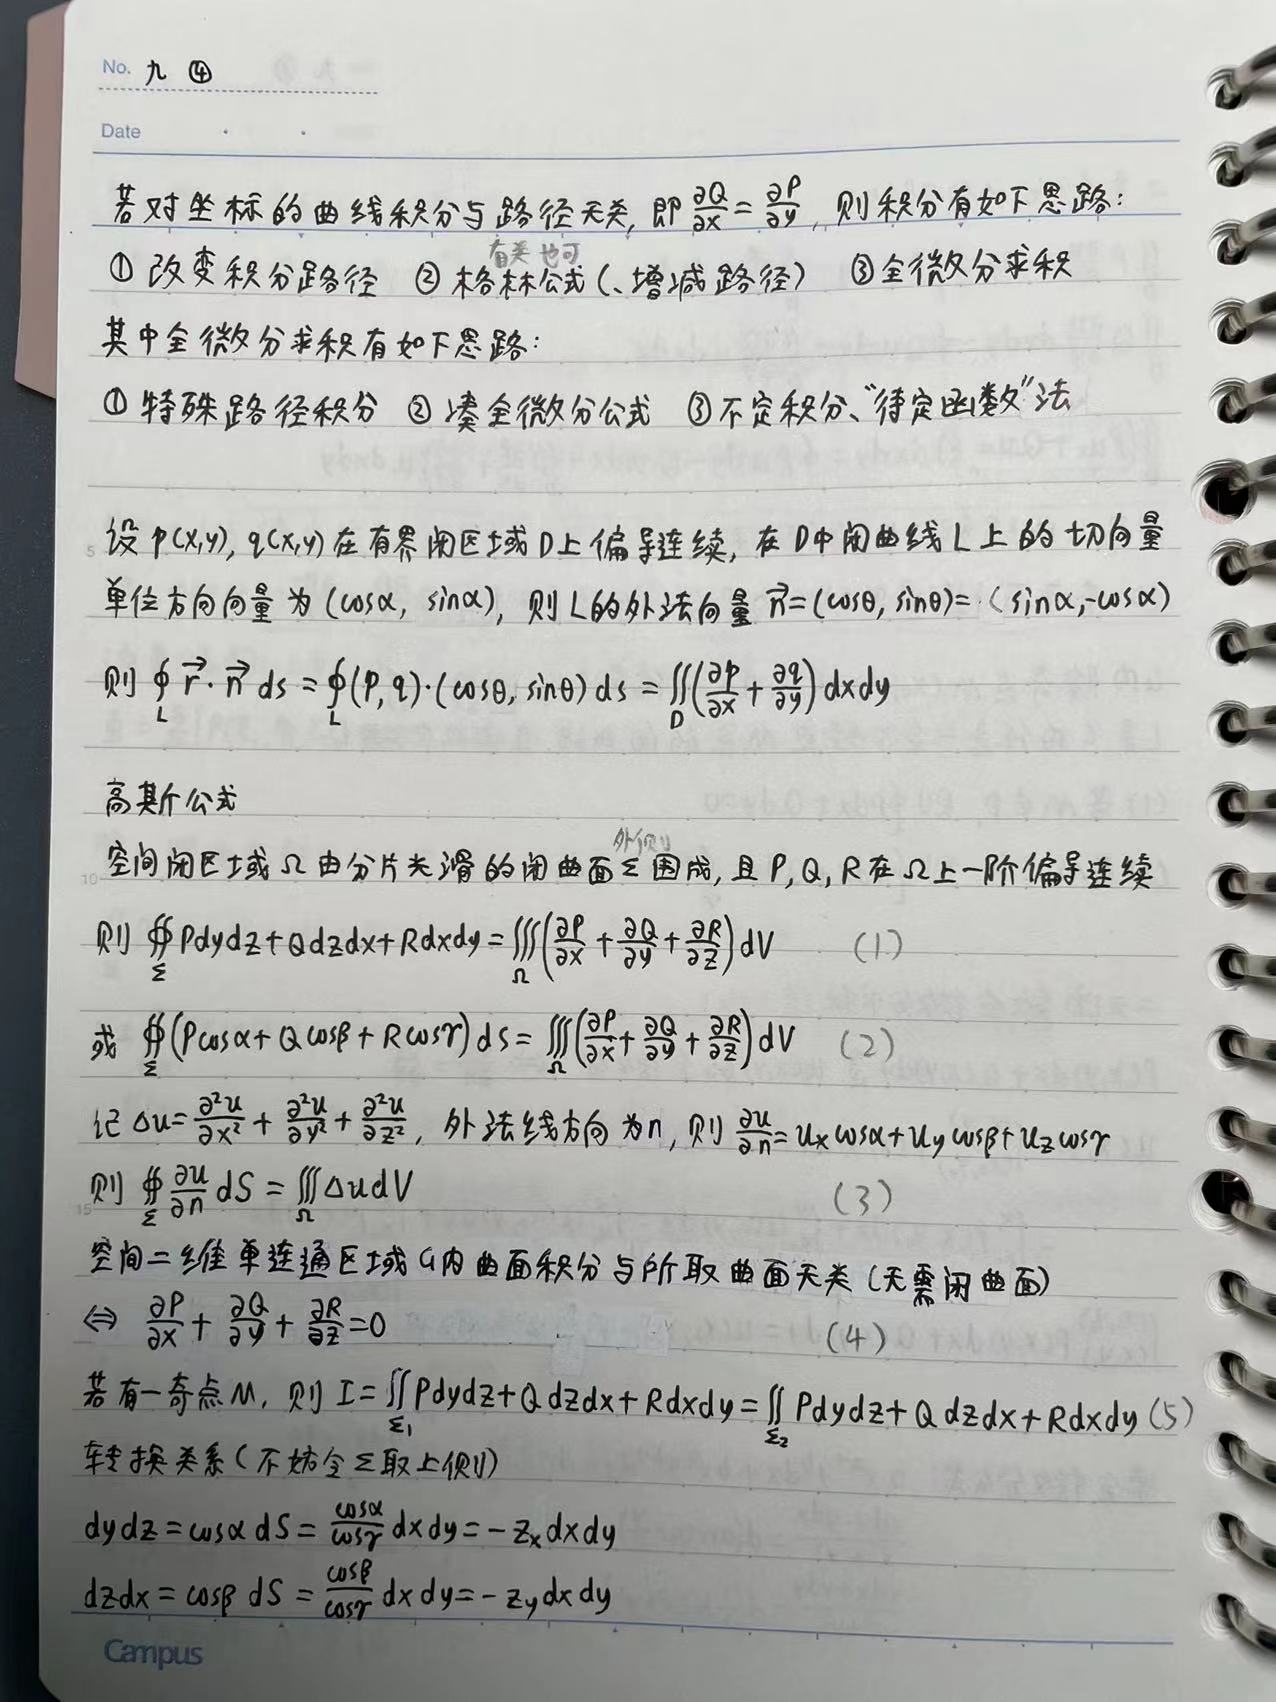 No. 九 ④
Date
若对坐标的曲线积分与路径无关, 即 ∂Q/∂x = ∂P/∂y, 则积分有如下思路:
有关也可
① 改变积分路径 ② 格林公式(、增减路径) ③ 全微分求积
其中全微分求积有如下思路:
① 特殊路径积分 ② 凑全微分公式 ③ 不定积分、“待定函数”法
5 设 p(x,y), q(x,y) 在有界闭区域D上偏导连续, 在D中闭曲线L上的切向量
单位方向向量为 (cosα, sinα), 则L的外法向量 n⃗=(cosθ, sinθ)=(sinα,-cosα)
则 ∮_L r⃗·n⃗ ds = ∮_L (p,q)·(cosθ, sinθ) ds = ∬_D (∂p/∂x + ∂q/∂y) dxdy
高斯公式
外侧
10 空间闭区域Ω由分片光滑的闭曲面Σ围成, 且P,Q,R在Ω上一阶偏导连续
则 ∯_Σ Pdydz+Qdzdx+Rdxdy = ∭_Ω (∂P/∂x + ∂Q/∂y + ∂R/∂z) dV (1)
或 ∯_Σ (Pcosα+Qcosβ+Rcosγ) dS = ∭_Ω (∂P/∂x + ∂Q/∂y + ∂R/∂z) dV (2)
记 Δu = ∂²u/∂x² + ∂²u/∂y² + ∂²u/∂z², 外法线方向为n, 则 ∂u/∂n = u_x cosα+u_y cosβ+u_z cosγ
15 则 ∯_Σ ∂u/∂n dS = ∭_Ω Δu dV (3)
空间二维单连通区域G内曲面积分与所取曲面无关(无需闭曲面)
⇔ ∂P/∂x + ∂Q/∂y + ∂R/∂z = 0 (4)
若有一奇点M, 则 I = ∬_Σ₁ Pdydz+Qdzdx+Rdxdy = ∬_Σ₂ Pdydz+Qdzdx+Rdxdy (5)
转换关系(不妨令Σ取上侧)
dydz = cosα dS = cosα/cosγ dxdy = -z_x dxdy
dzdx = cosβ dS = cosβ/cosγ dxdy = -z_y dxdy
Campus